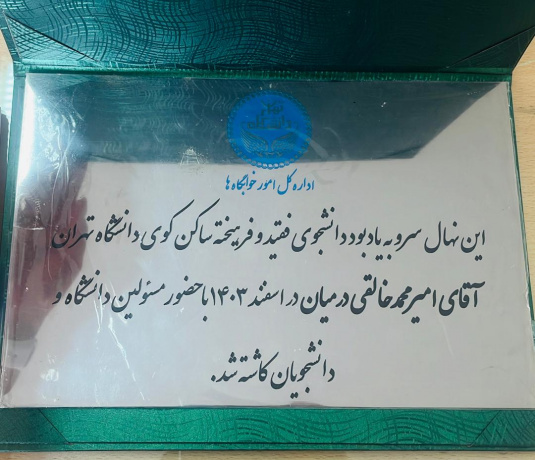 اداره کل امور خوابگاه ها
این نهال سرو به یادبود دانشجوی فقید و فرهیخته ساکن کوی دانشگاه تهران
آقای امیرمحمد خالقی درمیان در اسفند ۱۴۰۳ با حضور مسئولین دانشگاه و
دانشجویان کاشته شد.